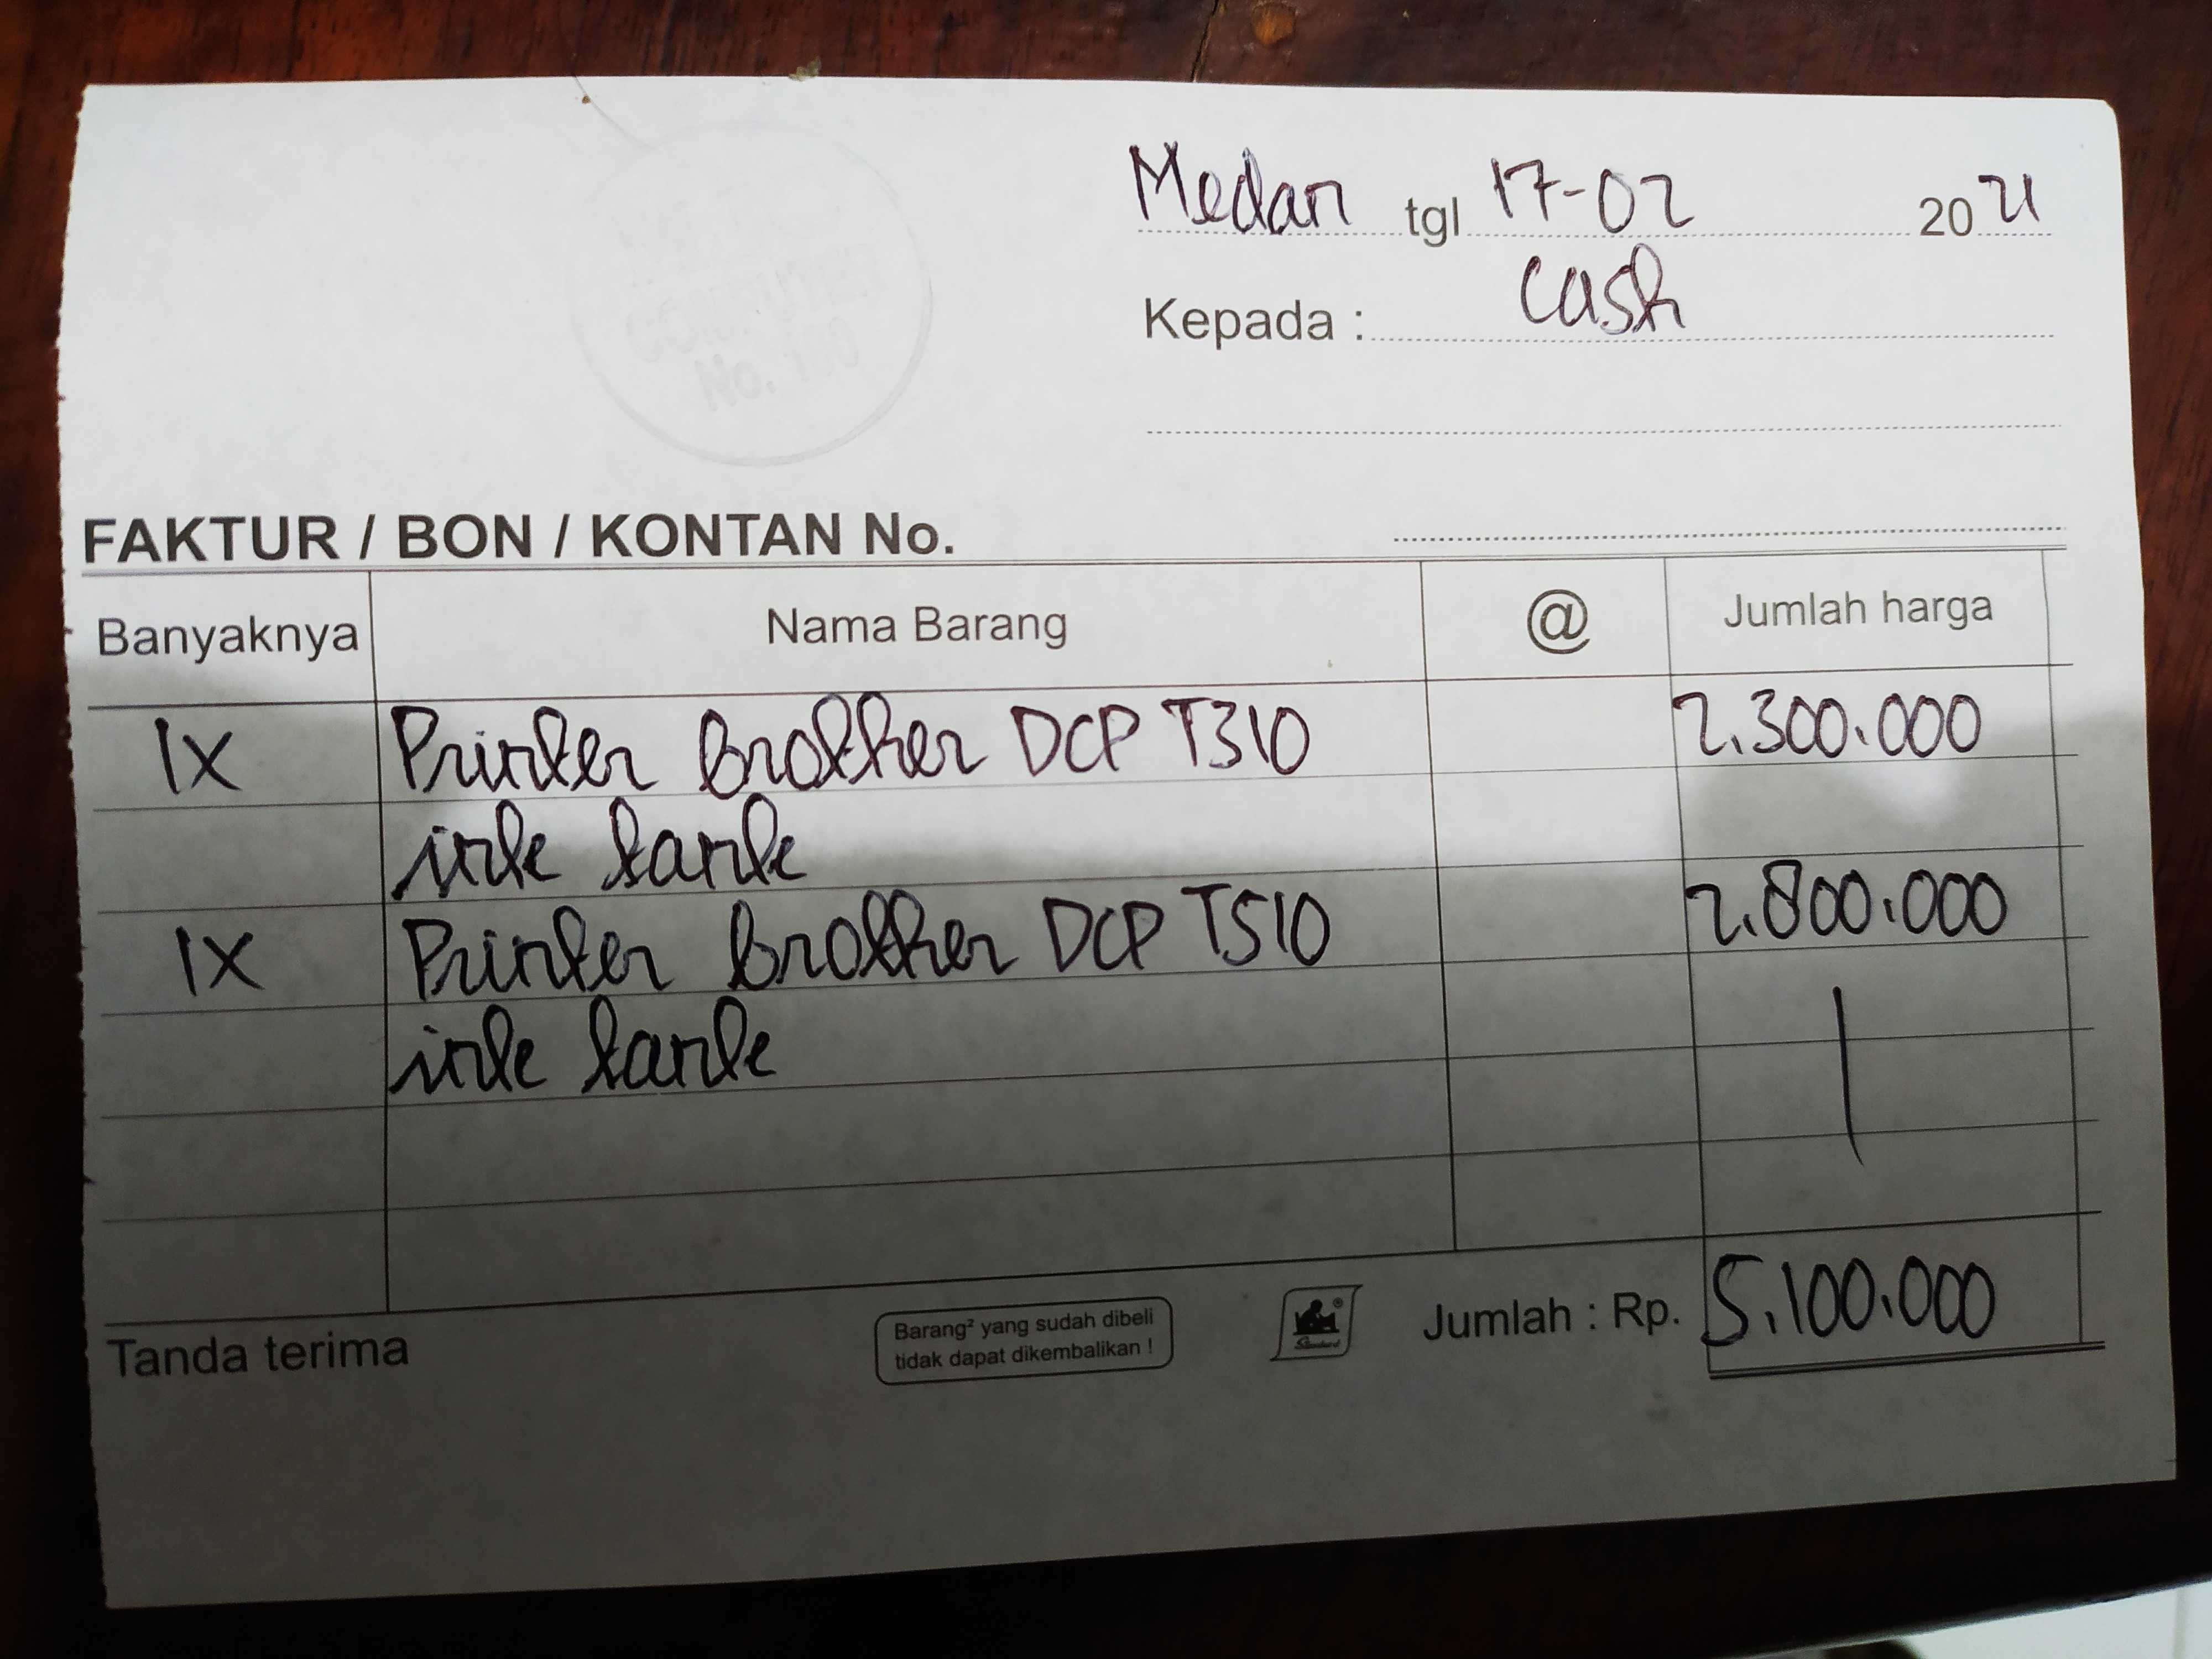 Medan tgl 17-02 2021
Kepada : Cash
FAKTUR / BON / KONTAN No.
Banyaknya Nama Barang @ Jumlah harga
1X Printer Brother DCP T310 2.300.000
ink tank
1X Printer Brother DCP T510 2.800.000
ink tank
Tanda terima
Barang² yang sudah dibeli
tidak dapat dikembalikan !
Standard
Jumlah : Rp. 5.100.000